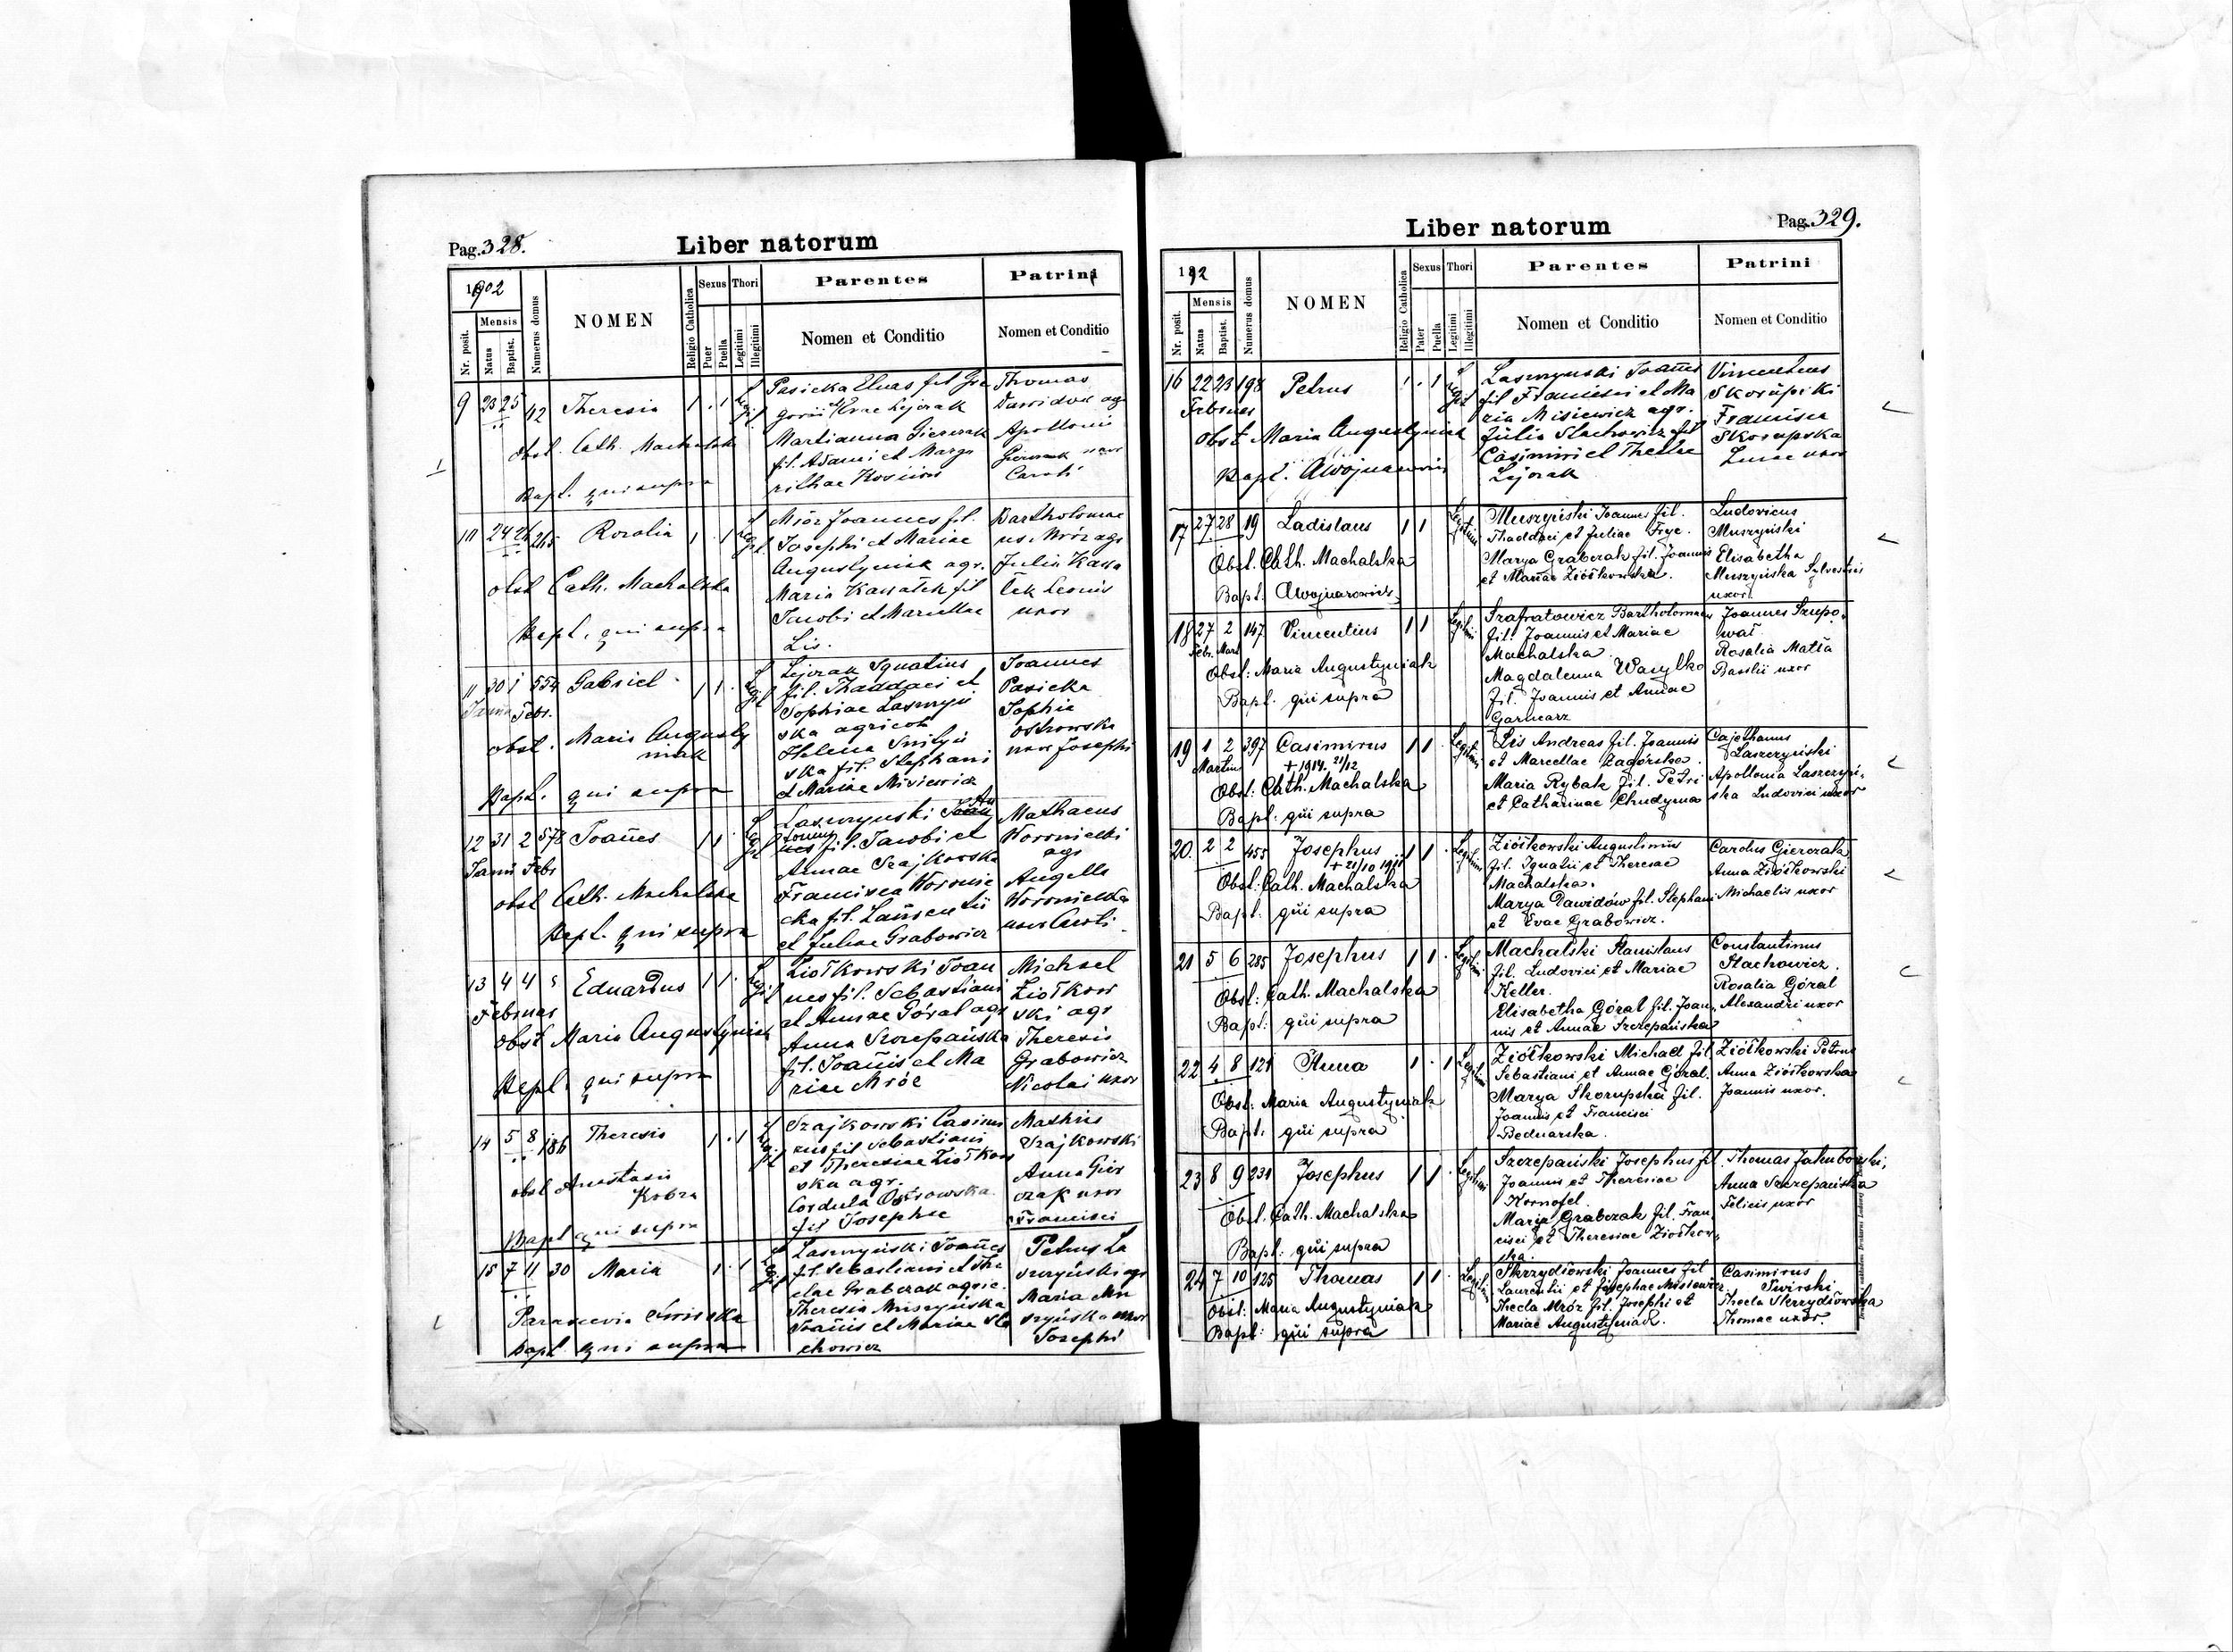 Pag. 328.
Liber natorum
1902
Nr. posit.
Mensis
Natus
Baptist.
Numerus domus
NOMEN
Religio Catholica
Sexus
Puer
Puella
Thori
Legitimi
Illegitimi
Parentes
Nomen et Conditio
Patrini
Nomen et Conditio
9 23 25 12 Theresia 1 . 1
Obst. Cath. Machalska
Bapt. qui supra
Pasicka Elias fil Gre
gorii et Evae Lejczak
Martianna
fil. Adami et Marga
rithae
Thomas
Dawidow agr
Apolloni
uxor
Caroli
10 24 26 265 Rozalia 1 . 1
obst Cath. Machalska
Bapt. qui supra
Mróz Joannes fil.
Josephi et Mariae
Augustyniak agr.
Maria Kassatek fil
Jacobi et Marcellae
Lis.
Bartholomae
us Mróz agr
Julia Kassa
tek Leonis
uxor
11 30 1 554 Gabriel 1 1 .
Janua Febr.
obst. Maria Augusty
niak
Bapt. qui supra
Lejczak Ignatius
fil. Thaddaei et
Sophiae
ska agricola
Helena
ska fil. Stephani
et Mariae Misiewicz
Joannes
Pasicka
Sophia
Ostrowska
uxor Josephi
12 31 2 578 Joañes 1 1 .
Janu Febr
obst Cath. Machalska
Bapt. qui supra
fil. Jacobi et
Annae Szajkowska
Francisca Woronie
cka fil. Laurentii
et Juliae Grabowicz
Mathaeus
Woroniecki
agr
Angella
Woroniecka
uxor Caroli.
13 4 4 5 Eduardus 1 1 .
Februar
obst Maria Augustyniak
Bapt. qui supra
Ziołkowski Joan
nes fil. Sebastiani
et Annae Góral agr
Anna Szczepańska
fil. Joañis et Ma
riae Mróz
Michael
Ziołkow
ski agr
Theresia
Grabowicz
Nicolai uxor
14 5 8 186 Theresia 1 . 1
obst Anastasia
Kobza
Bapt qui supra
Szajkowski Casimi
rus fil Sebastiani
et Theresiae Ziołkow
ska agr.
Cordula Ostrowska
fil Josephae
Mathias
Szajkowski
Anna Gier
czak uxor
Francisci
15 7 11 30 Maria 1 . 1
Parascevia
Bapt qui supra
Joañes
fil. Sebastiani et The
clae Grabczak agric.
Theresia Muszyńska
Joañis et Mariae Sta
chowicz
Petrus La
szczyński agr
Maria Mu
szyńska uxor
Josephi
Pag. 329.
Liber natorum
192
Nr. posit.
Mensis
Natus
Baptist.
Numerus domus
NOMEN
Religio Catholica
Sexus
Pater
Puella
Thori
Legitimi
Illegitimi
Parentes
Nomen et Conditio
Patrini
Nomen et Conditio
16 22 23 198 Petrus 1 . 1
Februar
Obst Maria Augustyniak
Bapt. AWojnarowicz
Joañes
fil Francisci et Ma
ria Misiewicz agr.
Julia Stachowicz fil
Casimiri et Theclae
Lejczak
Vincentius
Skorupski
Francisca
Skorupska
Lucae uxor
17 27 28 19 Ladislaus 1 1 Legitimi
Obst. Cath. Machalska
Bapt: AWojnarowicz
Muszyński Joannes fil.
Thaddaei et Juliae Fryc.
Marya Grabczak fil. Joannis
et Mariae Ziółkowska.
Ludovicus
Muszyński
Elisabetha
Muszyńska Sylvestris
uxor.
18 27 2 147 Vincentius 1 1 Legitimi
Febr. Mart
Obst: Maria Augustyniak
Bapt. qui supra
Szafratowicz Bartholomaeus
fil. Joannis et Mariae
Machalska
Magdalenna Wasylko
fil. Joannis et Annae
Garncarz
Joannes Szupo-
wał.
Rosalia Matła
Basilii uxor
19 1 2 397 Casimirus 1 1 . Legitimi
Martius + 1914. 21/12
Obst: Cath. Machalska
Bapt: qui supra
Lis Andreas fil. Joannis
et Marcellae Zagórska.
Maria Rybak fil. Petri
et Catharinae Chudyma
Cajethanus
Laszczyński
Apollonia Laszczyń-
ska Ludovici uxor
20. 2 2 455 Josephus 1 1 . Legitimi
+ 21/10 1911
Obst: Cath. Machalska
Bapt: qui supra
Ziółkowski Augustinus
fil. Ignatii et Theresae
Machalska.
Marya Dawidów fil. Stephani
et Evae Grabowicz.
Carolus Gierczak
Anna Ziółkowski
Michaelis uxor
21 5 6 285 Josephus 1 1 . Legitimi
Obst: Cath. Machalska
Bapt: qui supra
Machalski Stanislaus
fil. Ludovici et Mariae
Keller.
Elisabetha Góral fil. Joan-
nis et Annae Szczepańska
Constantinus
Stachowicz.
Rosalia Góral
Alexandri uxor
22 4 8 121 Anna 1 . 1 Legitimi
Obst: Maria Augustyniak
Bapt. qui supra
Ziółkowski Michael fil.
Sebastiani et Annae Góral.
Marya Skorupska fil.
Joannis et Francisci
Bednarska.
Ziółkowski Petrus
Anna Ziółkowska
Joannis uxor.
23 8 9 231 Josephus 1 1 . Legitimi
Obst. Cath. Machalska
Bapt: qui supra
Szczepański Josephus fil.
Joannis et Theresiae
Kornafel
Marya Grabczak fil. Fran-
cisci et Theresiae Ziółkow-
ska.
Thomas Jakubowski;
Anna Szczepańska
Felicis uxor
24 7 10 125 Thomas 1 1 . Legitimi
Obst: Maria Augustyniak
Bapt: qui supra
Skrzydłowski Joannes fil
Laurentii et Josephae Misiewicz
Thecla Mróz fil. Josephi et
Mariae Augustyniak.
Casimirus
Swirski
Thecla Skrzydłowska
Thomae uxor.